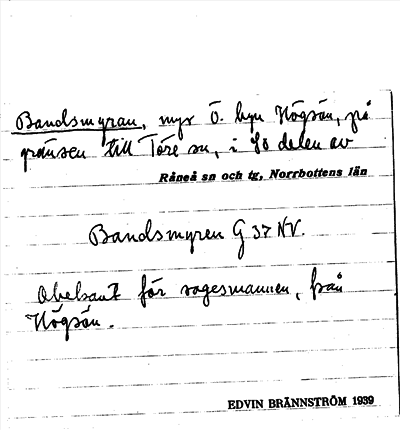 Bandsmyran, myr Ö. byn Högsön, på
gränsen till Töre sn, i Sö delen av
Råneå sn och tg, Norrbottens län
Bandsmyren G 37 NV.
Obekant för sagesmannen, från
Högsön.
EDVIN BRÄNNSTRÖM 1939